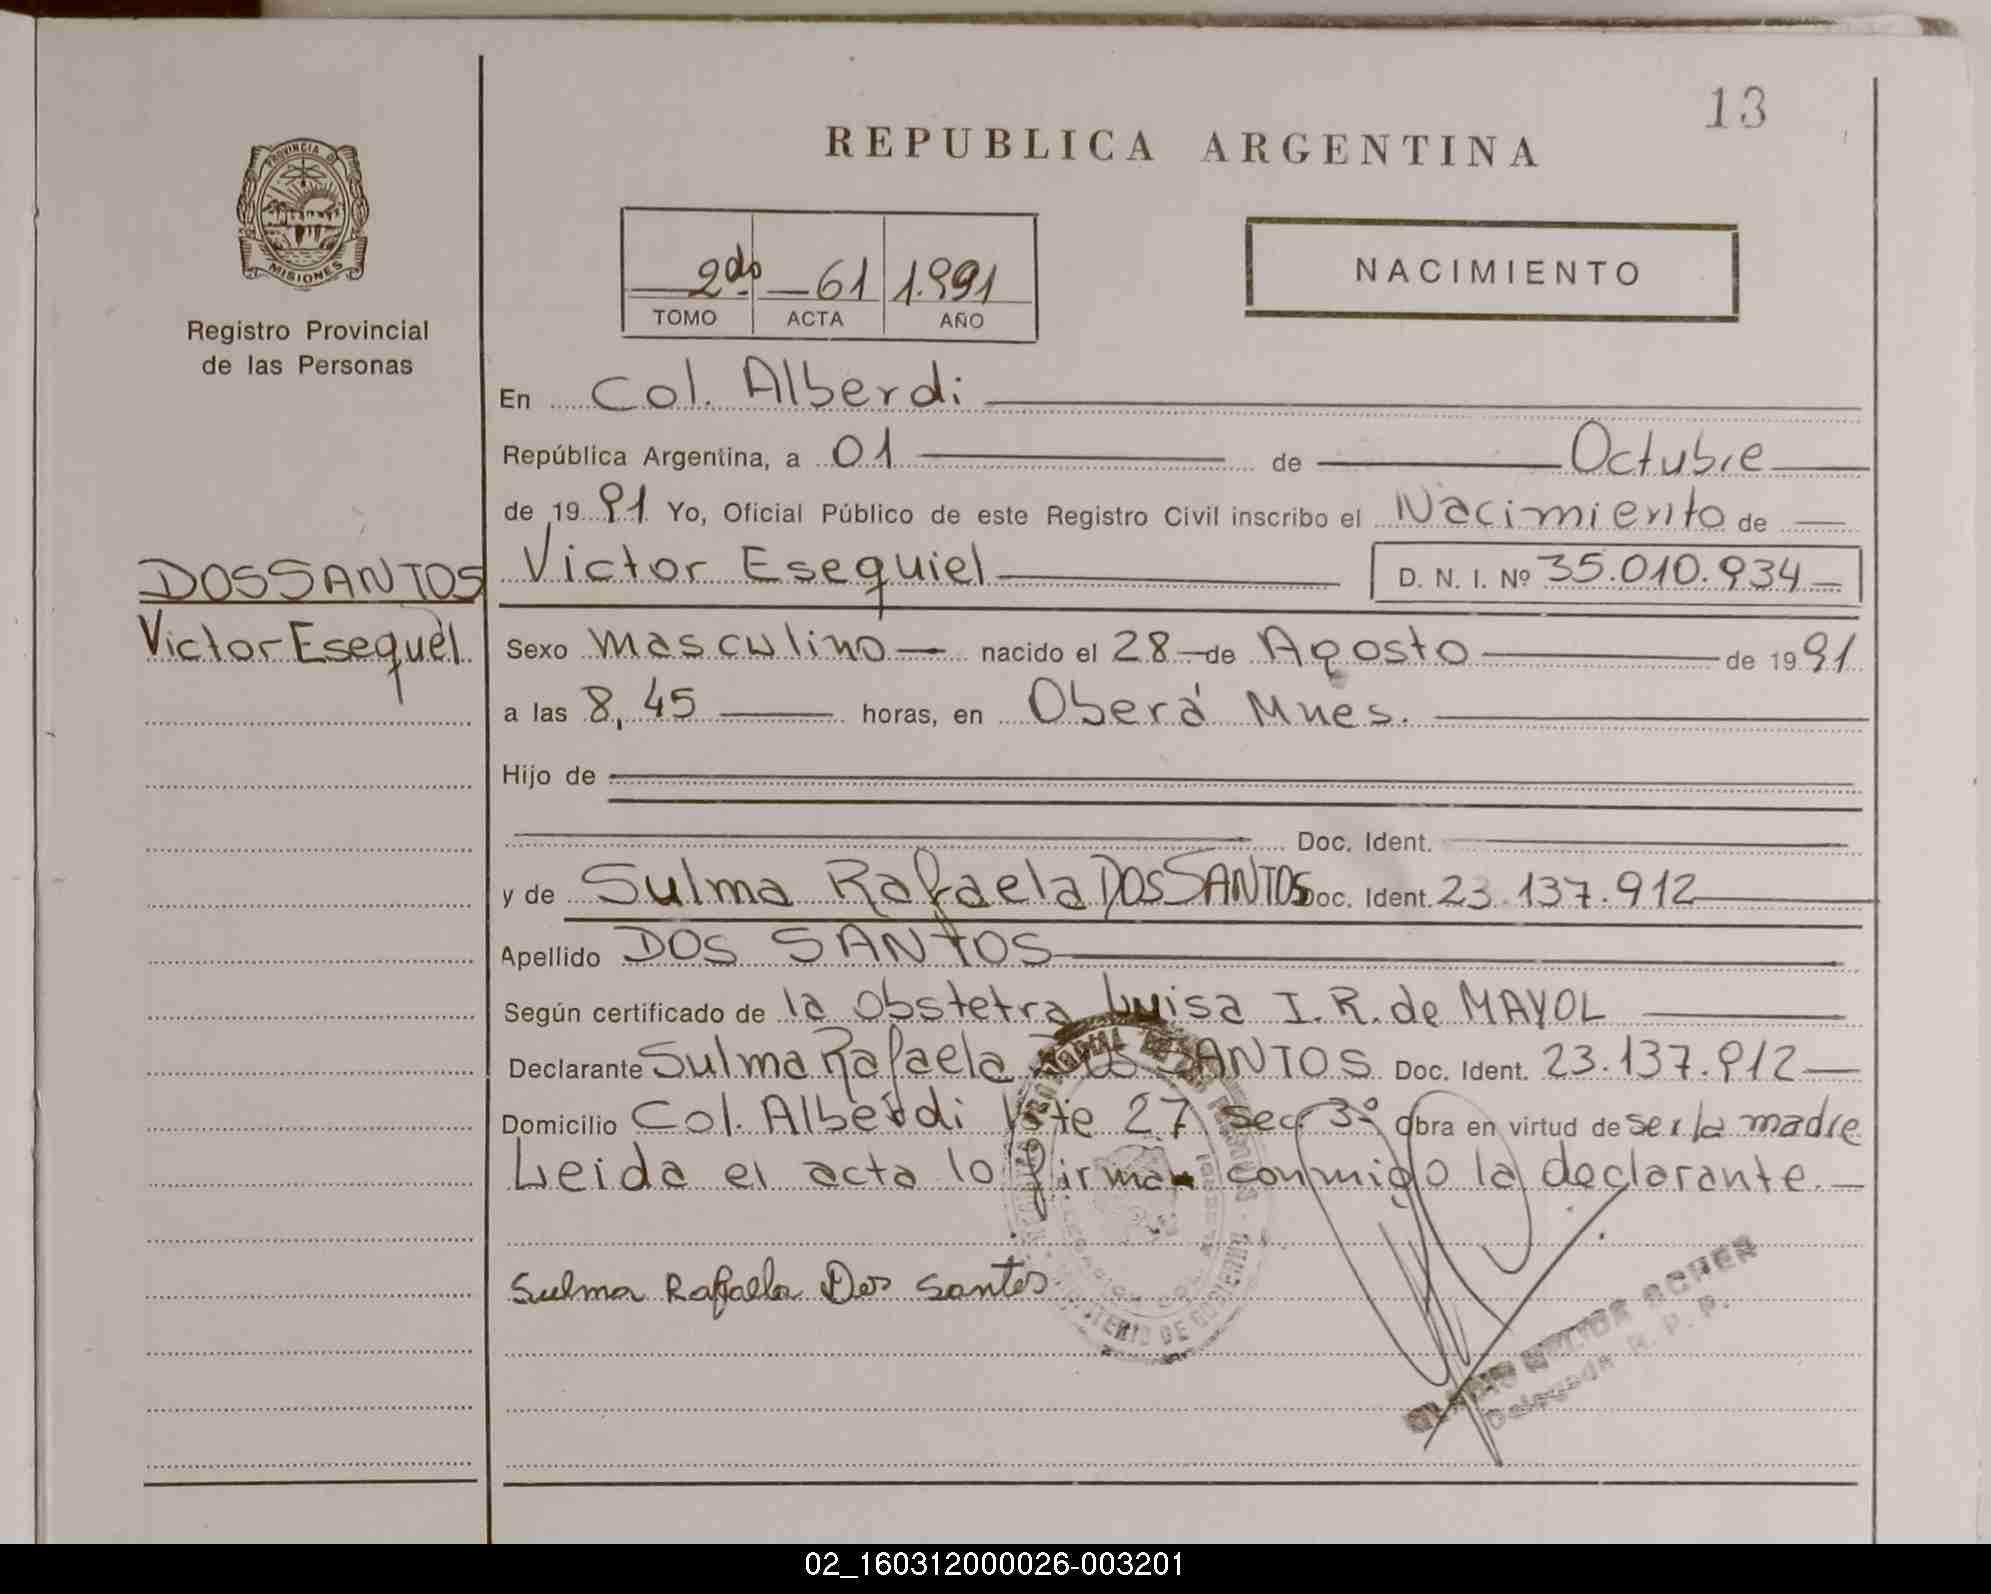 13
REPUBLICA ARGENTINA
PROVINCIA D
MISIONES
Registro Provincial
de las Personas
2do 61 1.991
TOMO ACTA AÑO
NACIMIENTO
En Col. Alberdi
República Argentina, a 01 de Octubre
de 1991 Yo, Oficial Público de este Registro Civil inscribo el Nacimiento de
DOS SANTOS
Victor Esequiel
Victor Esequiel D. N. I. Nº 35.010.934
Sexo Masculino nacido el 28 de Agosto de 1991
a las 8,45 horas, en Oberá Mnes.
Hijo de
Doc. Ident.
y de Sulma Rafaela DOS SANTOS Doc. Ident. 23.137.912
Apellido DOS SANTOS
Según certificado de la Obstetra Luisa I. R. de MAYOL
Declarante Sulma Rafaela DOS SANTOS Doc. Ident. 23.137.912
Domicilio Col. Alberdi Lote 27 sec. 3º obra en virtud de ser la madre
Leida el acta lo firman conmigo la declarante.
Sulma Rafaela Dos Santos
MINISTERIO DE GOBIERNO
Delegado R. P. P.
02_160312000026-003201